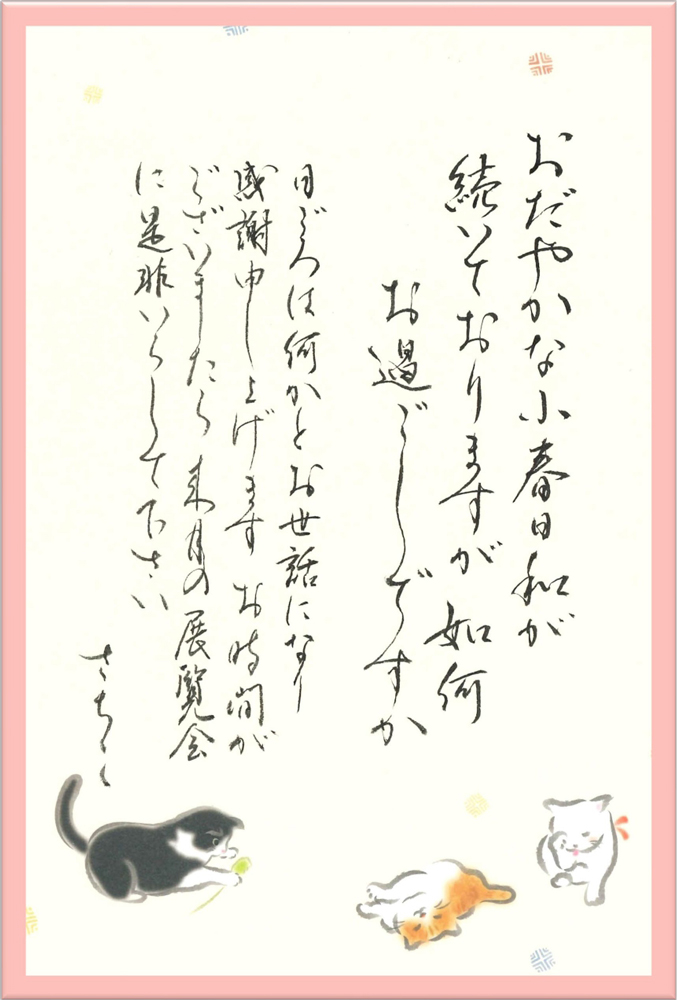 おだやかな小春日和が
続いておりますが如何
お過ごしですか
日ごろは何かとお世話になり
感謝申し上げます お時間が
ございましたら来月の展覧会
に是非いらして下さい
さちこ